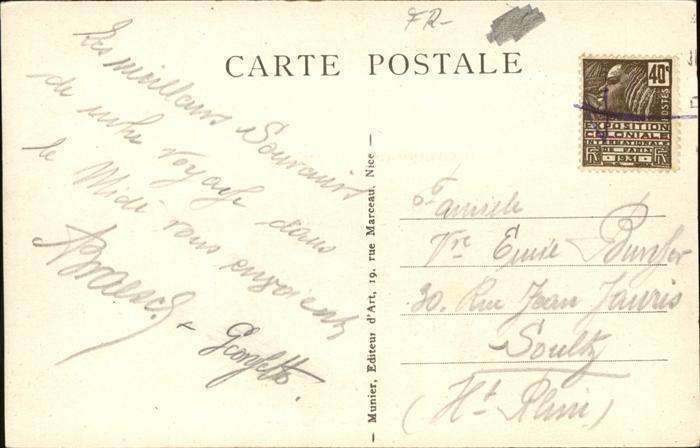 FR-
CARTE POSTALE
40c
POSTES
EXPOSITION
COLONIALE
INTERNATIONALE
DE PARIS
RF 1931 RF
Les meilleurs Souvenirs
de notre voyage dans
le Midi vous envoient
Georgette.
Munier, Editeur d'Art, 19, rue Marceau, Nice —
Famille
Vve Emile
30. Rue Jean Jaurès
Soultz
(Ht Rhin)